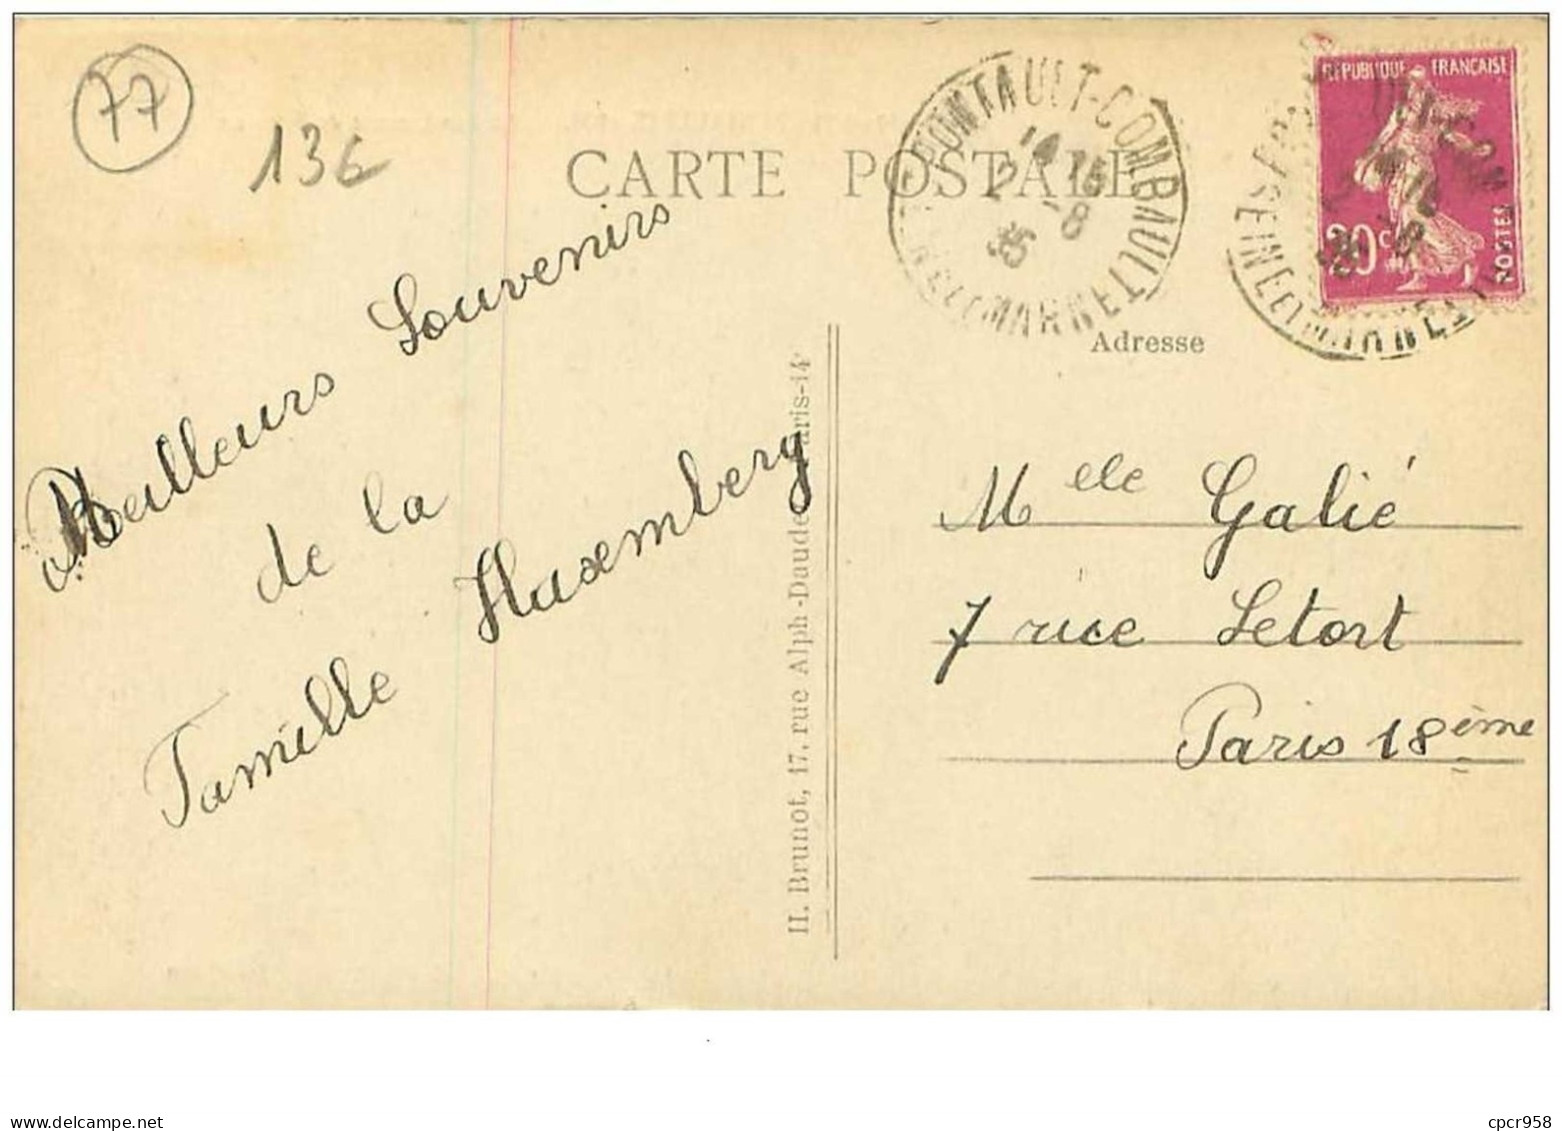 77
13€
CARTE POSTALE
PONTAULT-COMBAULT
14 15
2 -8
35
SEINE ET MARNE
RÉPUBLIQUE FRANÇAISE
20c
POSTES
Meilleurs Souvenirs
de la
Famille Huxemberg
H. Brunot, 17, rue Alph-Daudet Paris-14e
Adresse
Melle Galié
7 rue Letort
Paris 18ème
cpcr958